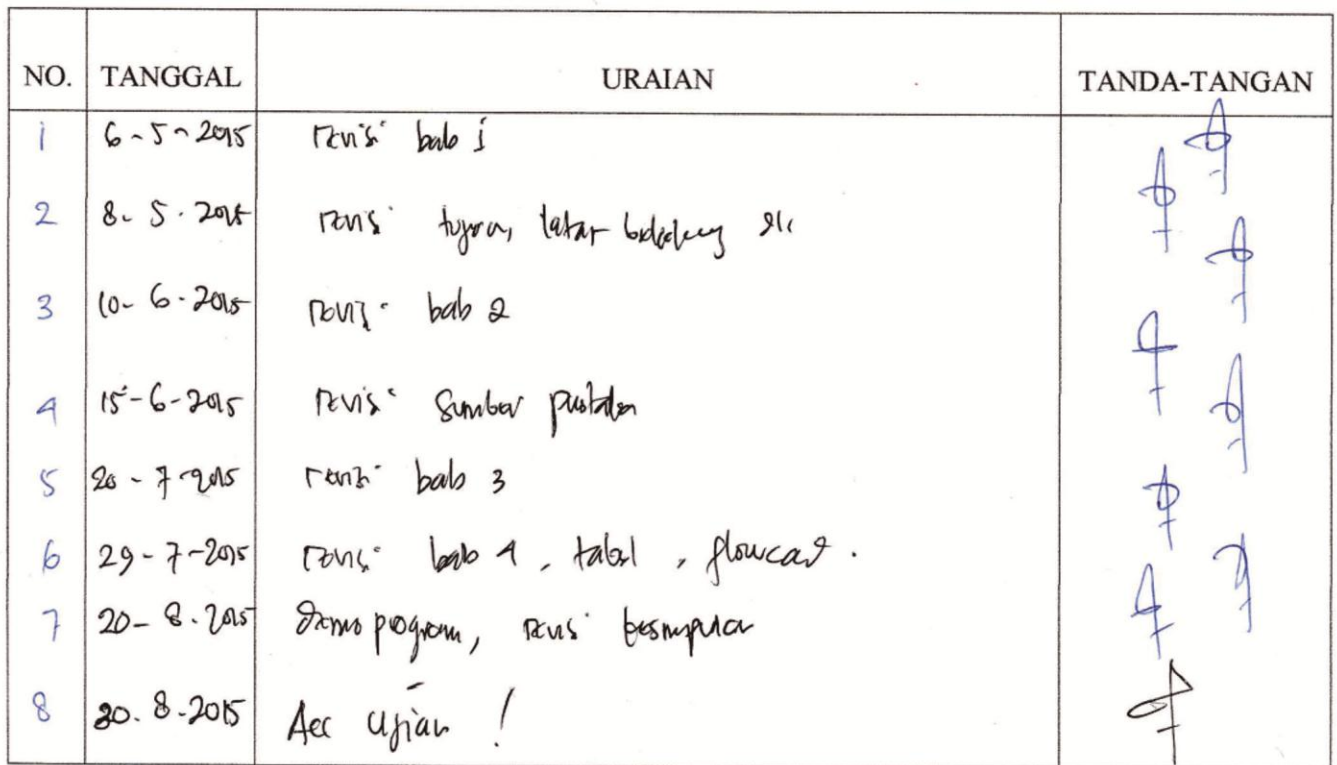 NO. TANGGAL URAIAN TANDA-TANGAN
1 6-5-2015 revisi bab 1
2 8-5-2015 revisi tujuan, latar belakang
3 10-6-2015 revisi bab 2
4 15-6-2015 revisi sumber pustaka
5 20-7-2015 revisi bab 3
6 29-7-2015 revisi bab 4, tabel, flowcat.
7 20-8-2015 Demo program, revisi kesimpulan
8 8-2015 Acc Ujian !